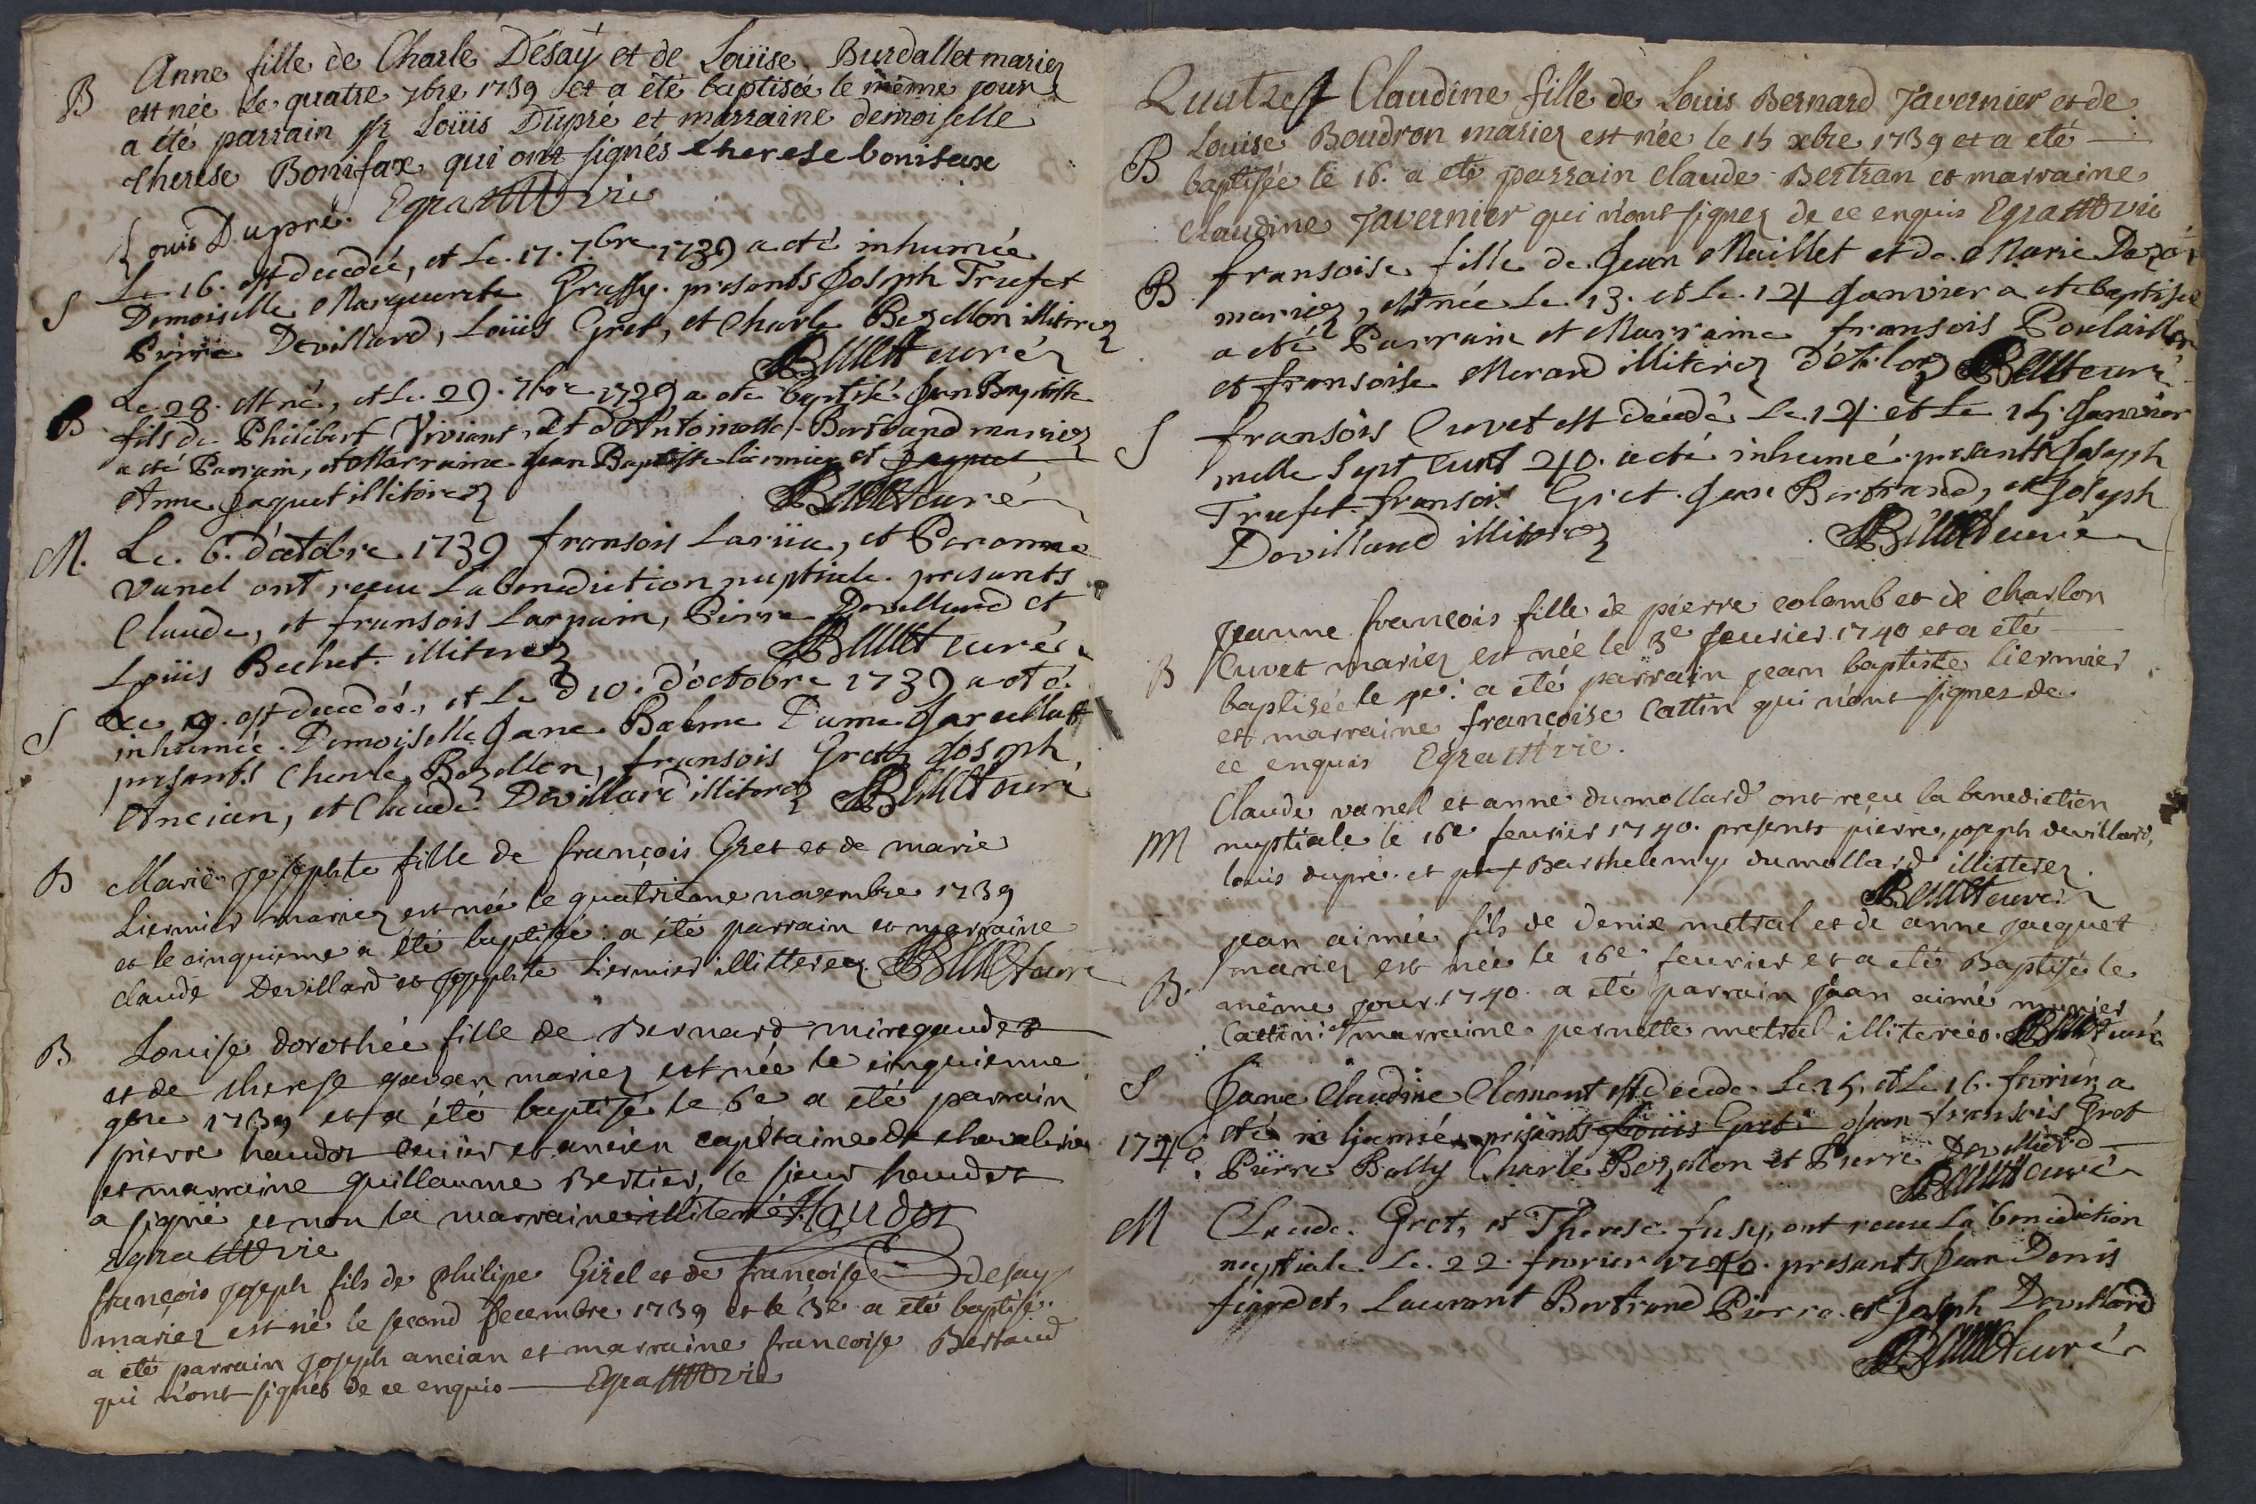 B Anne fille de Charle Desaÿ et de Loüise Burdallet mariez
est née le quatre 7bre 1739 et a été baptisée le même jour
a été parrain sr Loüis Dupré et marraine demoiselle
therese Bonifax qui ont signés therese bonifaxe
Louis Dupré Egrattovie
S Le 16. est decedée, et Le. 17. 7bre 1739 a eté inhumée
Demoiselle Marguerite Graffy. presents Joseph Trufet
Pierre Devillard, Loüis Gret, et Charle Bezellon illiterez
Curé
B Le 28. est né, et Le. 29. 7bre 1739 a ete baptisé Jean Baptiste
fils de Philibert Viviant, et d'Antoinette Bertrand mariez
a eté Parrain, et Marraine Jean Baptiste liermier et Jaquet
Anne Jaquet illiterez curé
M. Le. 6. d'octobre. 1739 fransois Lariia, et Peronne
Vanel ont receu La benediction nuptiale. presants
Claude, et fransois Larpain, Pierre Devillard et
Loüis Bechet illiterez curé
S Le 9. est decedée, et Le d 10. d'octobre 1739 a eté
inhumée. Demoiselle Jane Balme Dame Jarcellat
presants Charle Bezellon, fransois Gret, Joseph
Ancian, et Claude Devillard illiterez curé
B Marie josephte fille de françois Gret et de marie
Liermier mariez est née le quatrieme novembre 1739
et le cinquieme a été baptisée: a été parrain et marraine
claude Devillard et josephte Liermier illitterez. curé
B Louise dorothée fille de Bernard miregaudet
et de therese gavoen mariez est née le cinquieme
9bre 1739 et a été baptisé le 6e a été parrain
pierre haudot ecuier et ancien capitaine de chevalerie
et marraine guillaume Bertier, le sieur haudot
a signé et non la marraine illiterée. Haudot
Egrattovie
françois joseph fils de philipe Girel et de françoise desay
mariez est né le second decembre 1739 et le 3e a été baptisé.
a été parrain joseph ancian et marraine francoise Bertaud
qui n'ont signés de ce enquis Egrattovie
Quatre f Claudine fille de Louis Bernard Tavernier et de
B Louise Boudron mariez est née le 15 xbre 1739 et a eté
baptisée le 16. a eté parrain claude Bertran et marraine
claudine Tavernier qui n'ont signez de ce enquis Egrattovie
B fransoise fille de Jean Maillet et de Marie
mariez, est née Le. 13. et Le. 14 Janvier a ete baptisée
a eté Parrain et Marraine fransois
et fransoise Morand illiterez curé
S fransois Cuvet est decedé Le. 14. et Le 15 Janvier
mille sept cent 40. a eté inhumé. presants Joseph
Trufet fransois Gret. Jean Bertrand, et Joseph
Devillard illiterez curé
Jeanne françois fille de pierre colomb et de charlon
B Cuvet mariez est née le 3e fevrier 1740 et a eté
baptisée le 4e: a été parrain jean baptiste liermier
et marraine françoise Cattin qui n'ont signez de
ce enquis Egrattovie.
Claude vanel et anne dumollard ont reçu la benediction
M nuptiale le 16e fevrier 1740. presents pierre, joseph devillard,
louis dupré. et Barthelemy dumollard illitterez.
curé
jean aimée fils de denix metral et de anne jacquet
mariez est née le 16e fevrier et a eté Baptisée le
B même jour 1740. a eté parrain jean aimé murier
Cattin et marraine pernette metral illiterées. curé
S Jane Claudine Clement est decedé Le. 15, et Le 16. fevrier, a
1740. eté in humée presents Loüis Gret Jean fransois Gret
Pierre Bally Charle Bezellon et Pierre Devillard
curé
M Claude. Gret, et Therese fusy, ont receu La benediction
nuptiale. Le. 22. fevrier 1740. presants Jean Denis
Laurant Bertrand Pierre. et Joseph Devillard
curé